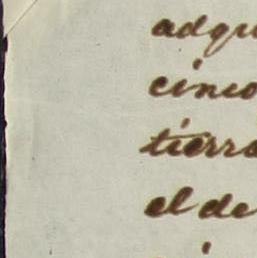 adqu
cinco
tierra
el de